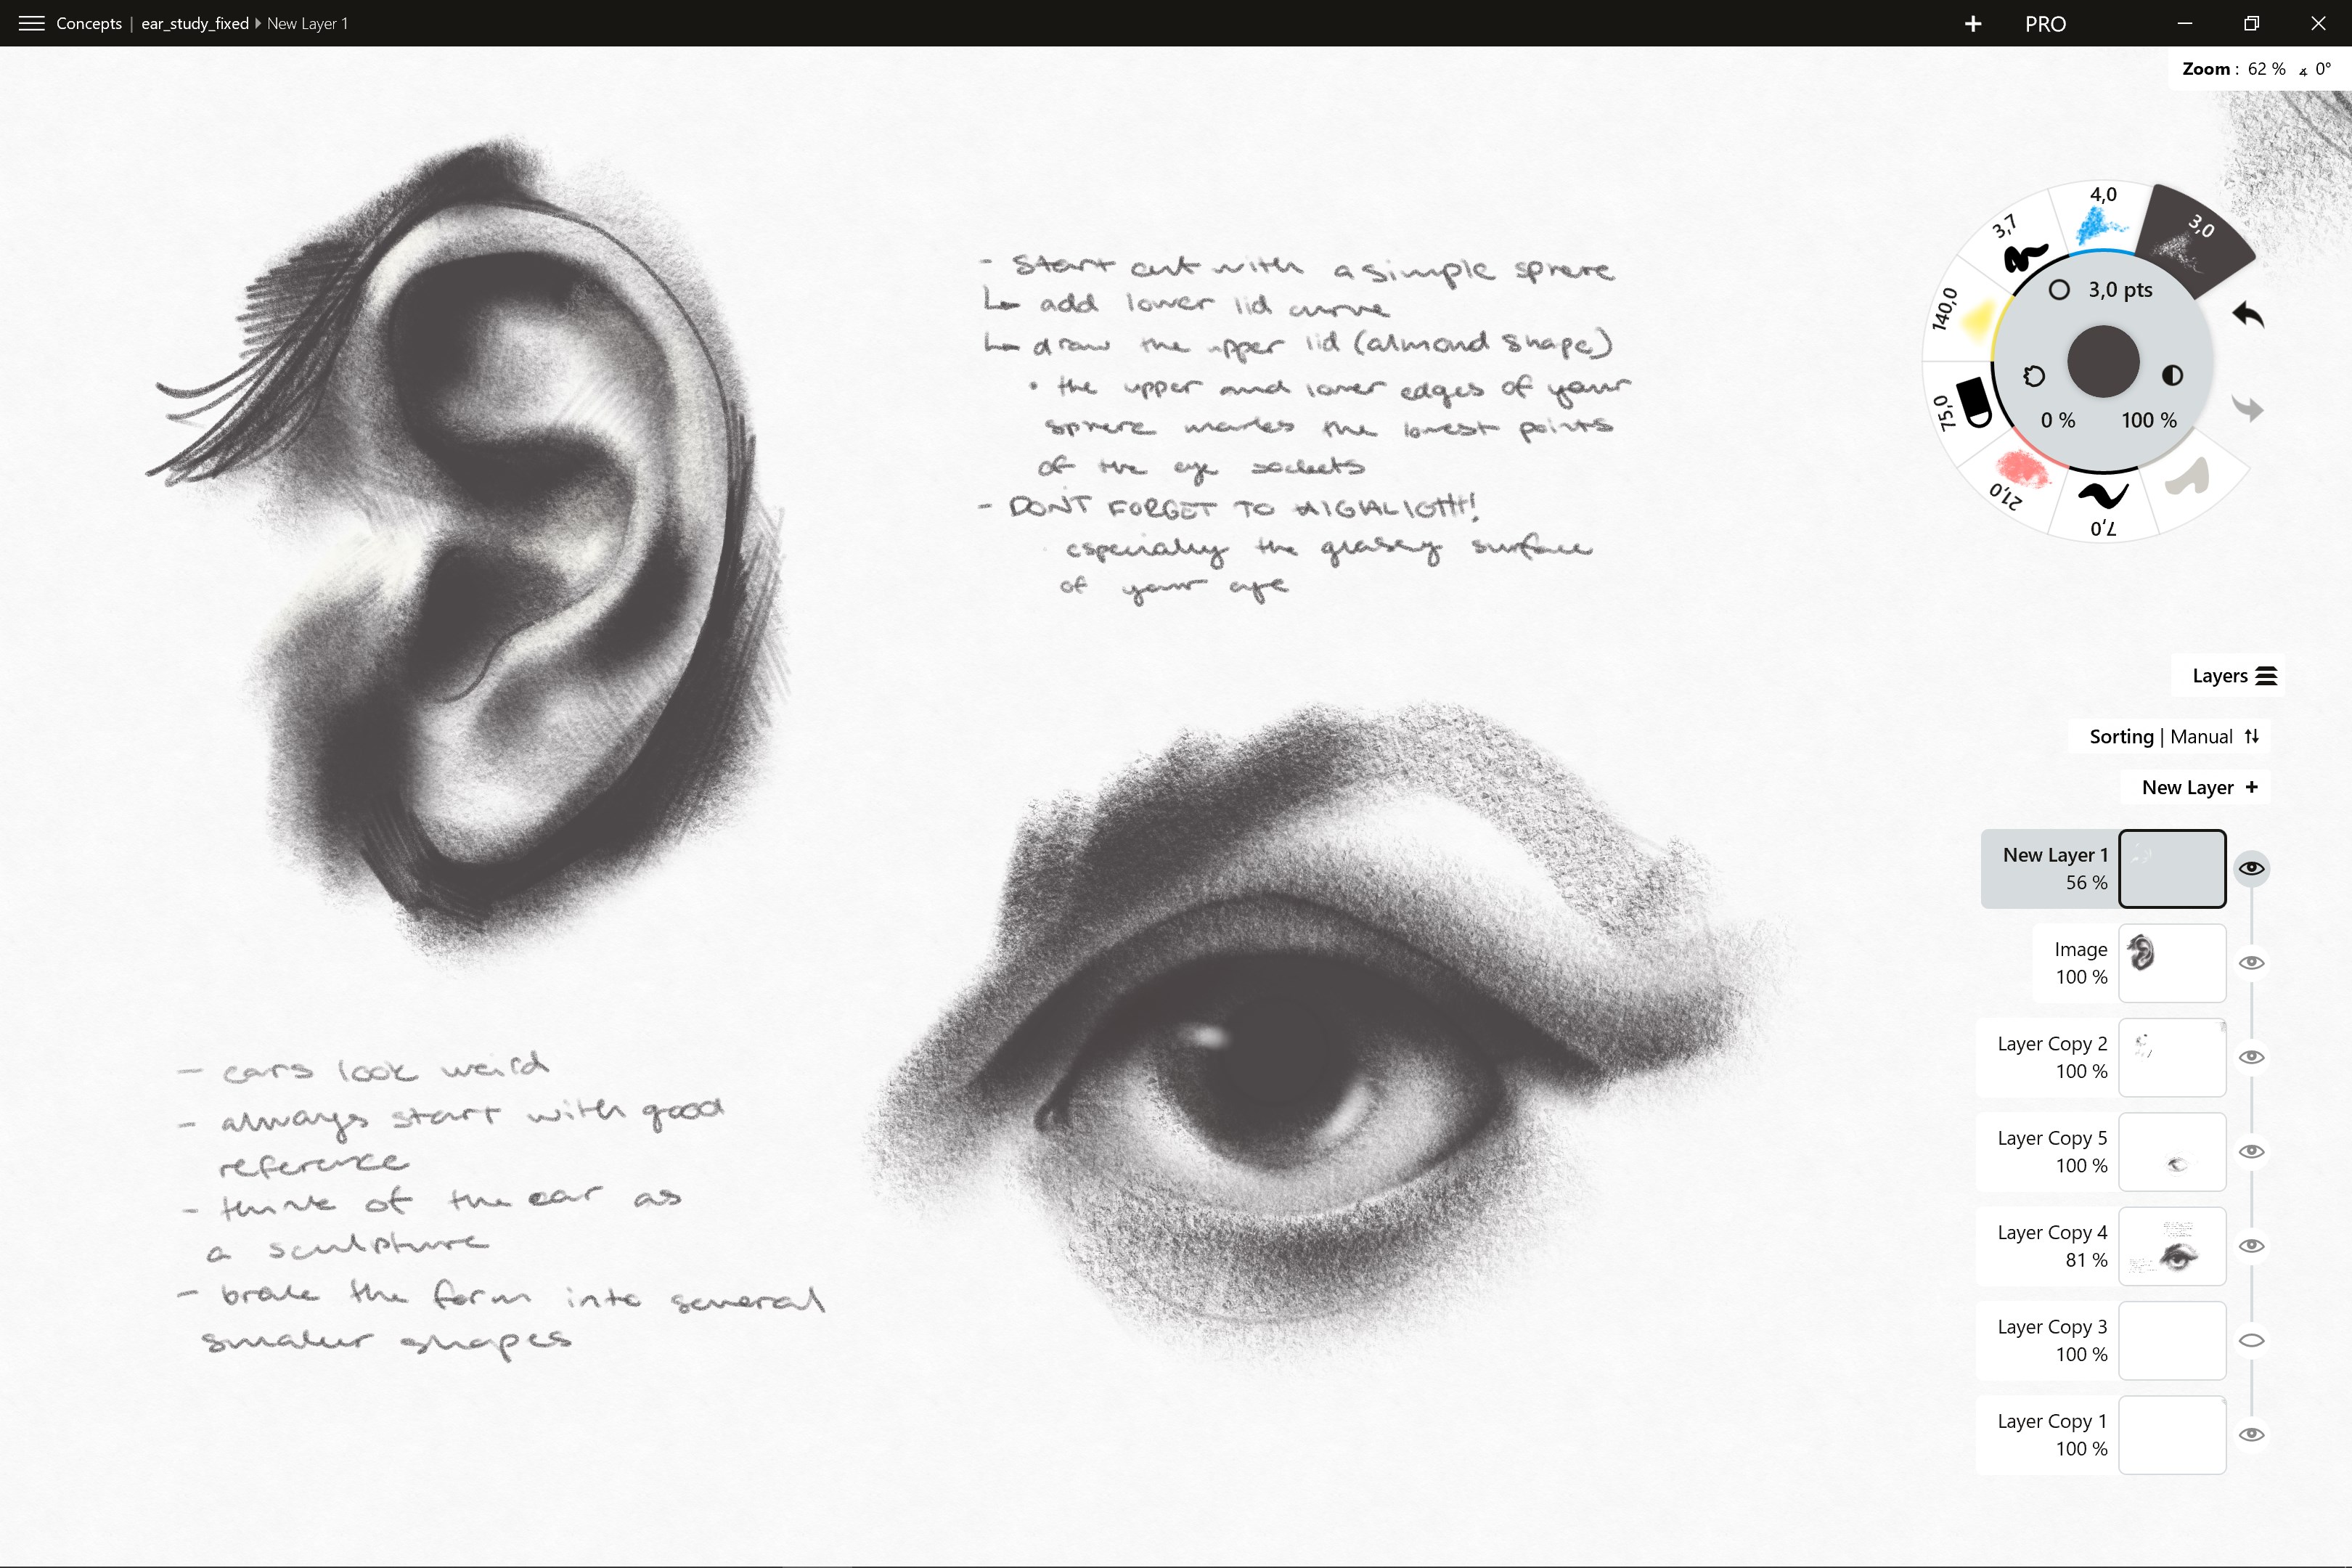 Concepts | ear_study_fixed New Layer 1
PRO
Zoom : 62 % 0°
4,0
3,0
3,7
140,0
75,0
21,0
7,0
3,0 pts
0 % 100 %
- start out with a simple sphere
↳ add lower lid curve
↳ draw the upper lid (almond shape)
• the upper and lower edges of your
sphere marks the lowest points
of the eye sockets
- DONT FORGET TO HIGHLIGHT!
especially the glassy surface
of your eye
- ears look weird
- always start with good
reference
- think of the ear as
a sculpture
- brake the form into several
smaller shapes
Layers
Sorting | Manual
New Layer +
New Layer 1
56 %
Image
100 %
Layer Copy 2
100 %
Layer Copy 5
100 %
Layer Copy 4
81 %
Layer Copy 3
100 %
Layer Copy 1
100 %